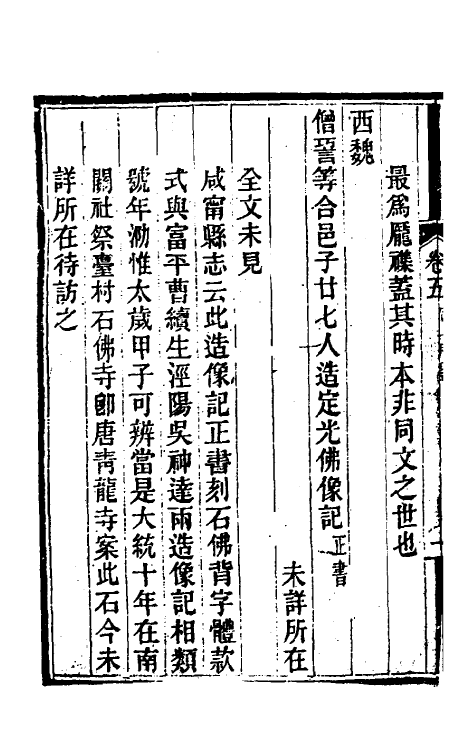 最爲龎襍蓋其時本非同文之世也
西魏
僧晉等合邑子廿七人造定光佛像記正書
未詳所在
全文未見
咸甯縣志云此造像記正書刻石佛背字體款
式與富平曹續生涇陽吳神達兩造像記相類
號年泐惟太歲甲子可辨當是大統十年在南
關社祭臺村石佛寺卽唐靑龍寺案此石今未
詳所在待訪之
卷五